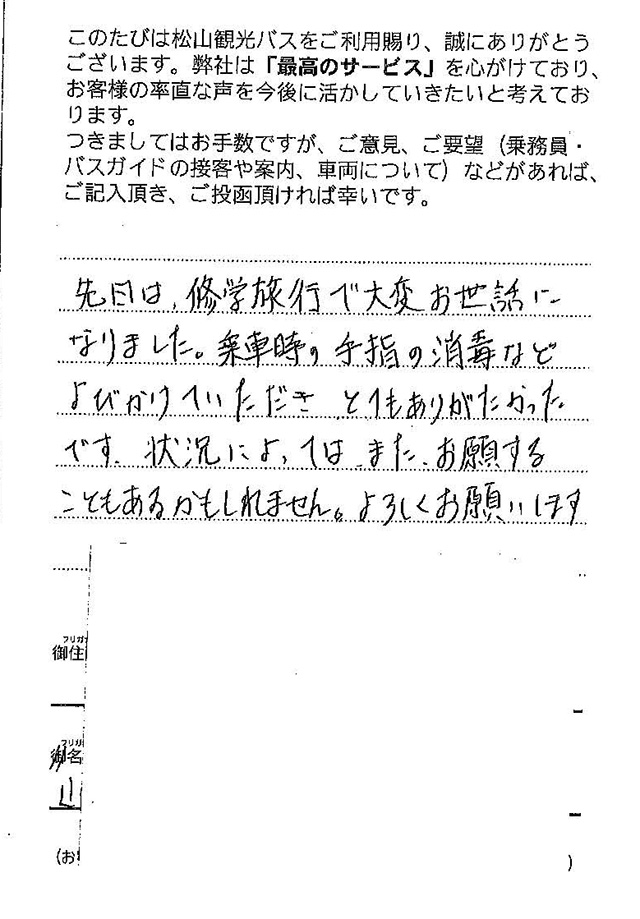 このたびは松山観光バスをご利用賜り、誠にありがとう
ございます。弊社は「最高のサービス」を心がけており、
お客様の率直な声を今後に活かしていきたいと考えてお
ります。
つきましてはお手数ですが、ご意見、ご要望（乗務員・
バスガイドの接客や案内、車両について）などがあれば、
ご記入頂き、ご投函頂ければ幸いです。
先日は、修学旅行で大変お世話に
なりました。乗車時の手指の消毒など
よびかけていただき とてもありがたかった
です。状況によっては、また、お願する
こともあるかもしれません。よろしくお願いします
フリガ
御住
フリガ
御名
(お
)